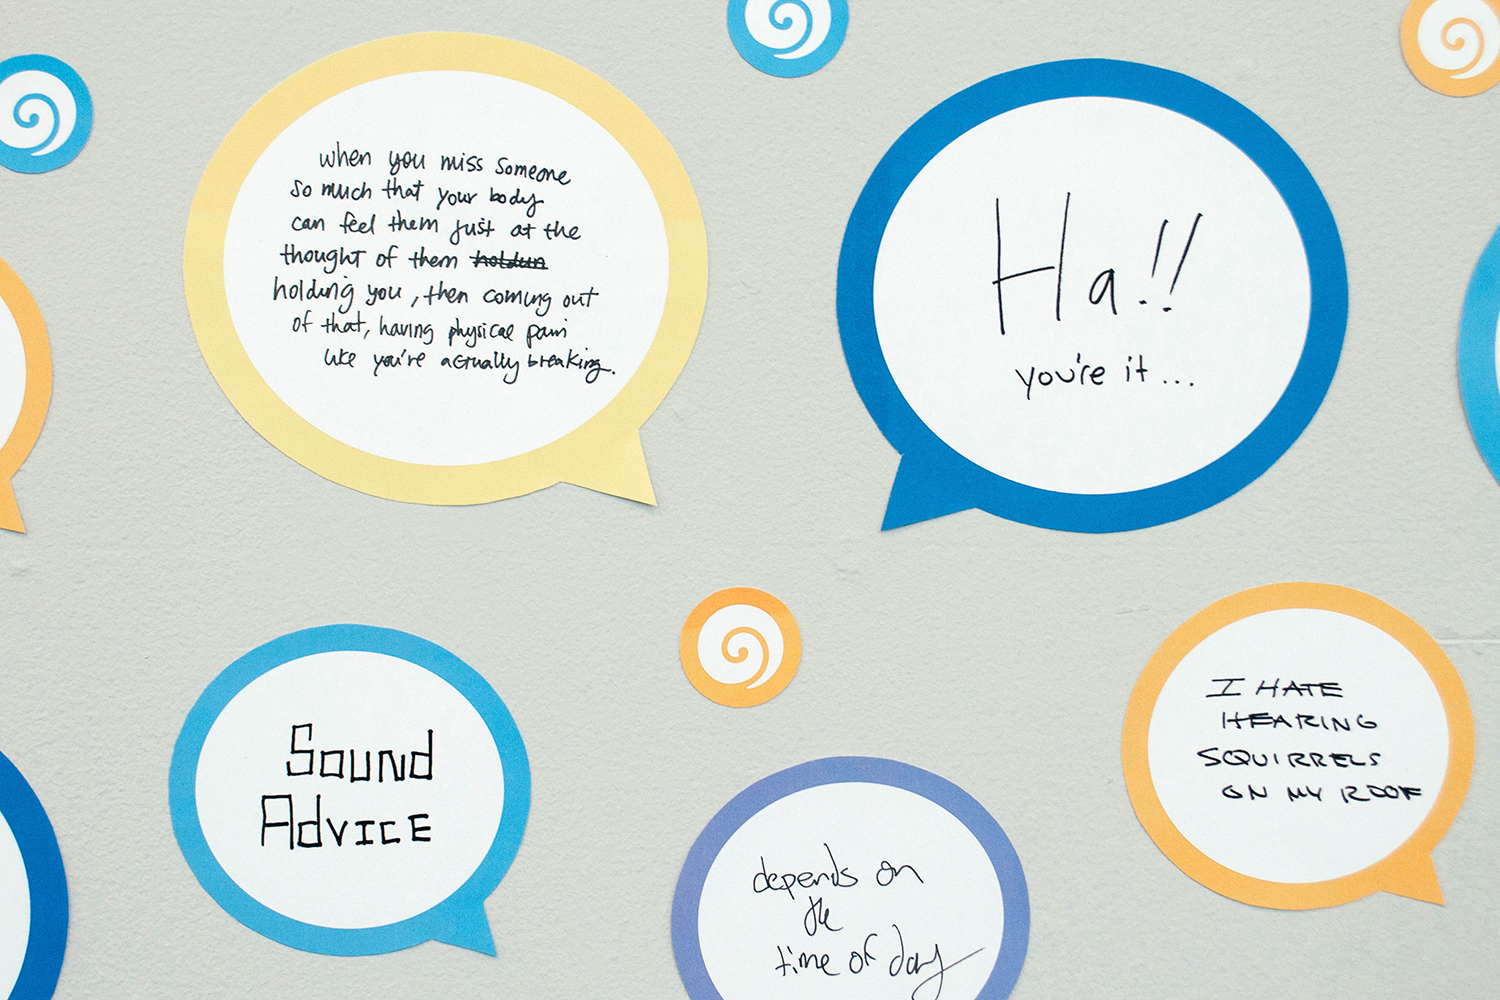 when you miss someone
so much that your body
can feel them just at the
thought of them holdun
holding you, then coming out
of that, having physical pain
like you're actually breaking.
Ha!!
you're it...
Sound
Advice
depends on
the
time of day
I HATE
HEARING
SQUIRRELS
ON MY ROOF